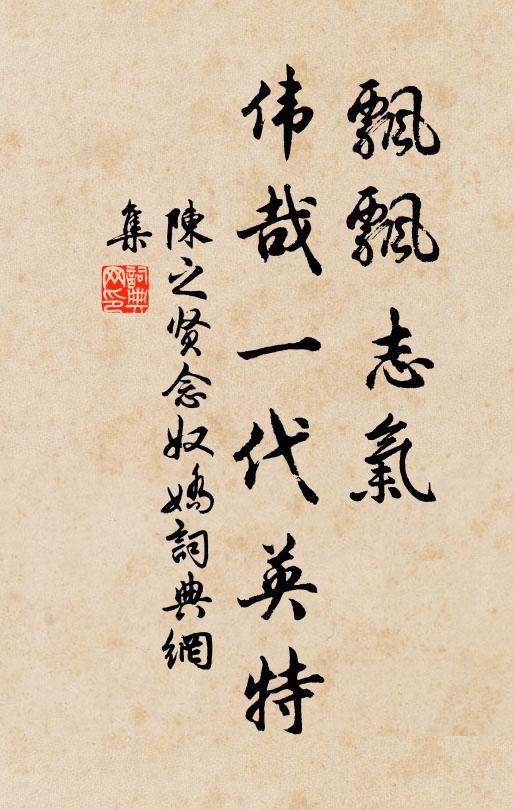 飄飄志氣
伟哉一代英特
陳之贤念奴嬌詞典網
集
詞典网印